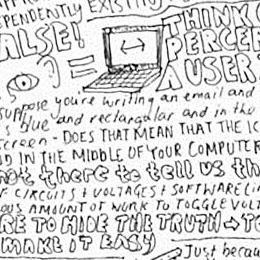 PENDENTLY EXISTI
THINK O
ALSE!
PERCEP
=
A USER
suppose you're writing an email and
's blue and rectangular and in the
screen - DOES THAT MEAN THAT THE IC
D IN THE MIDDLE OF YOUR COMPUTER
not there to tell us th
F CIRCUITS + VOLTAGES + SOFTWARE
OUS AMOUNT OF WORK TO TOGGLE VOLT
RE TO HIDE THE TRUTH → TO
MAKE IT EASY
Just becau